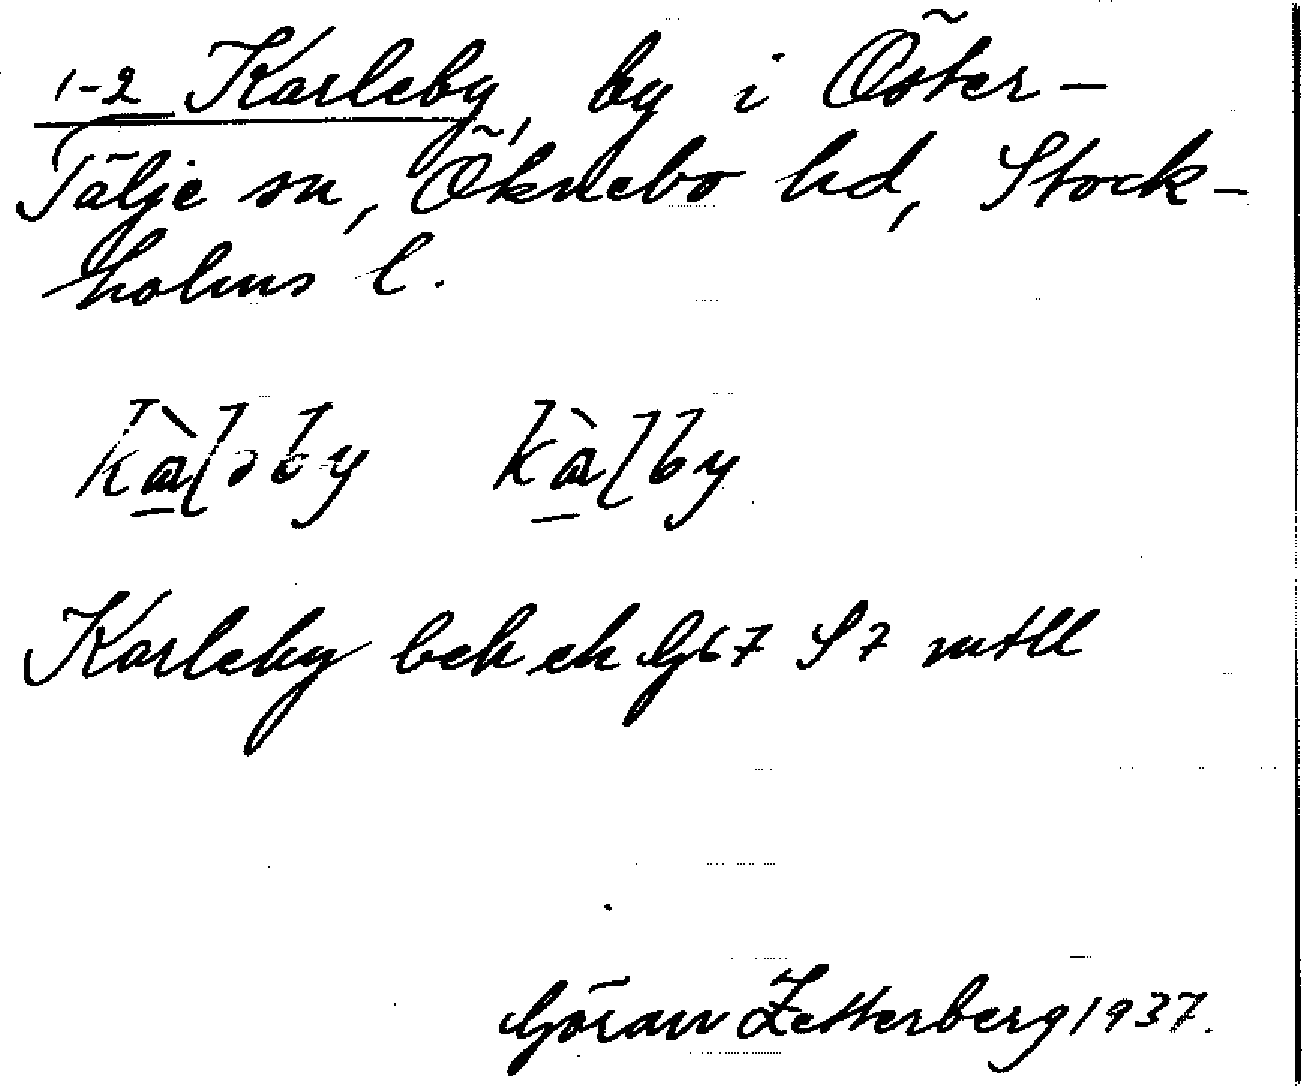 1-2 Karleby, by i Öster-
Tälje sn, Öknebo hd, Stock-
holms l.
kàlby
Karleby bek ek Gb 7 S 7 mtll
Göran Zetterberg 1937.